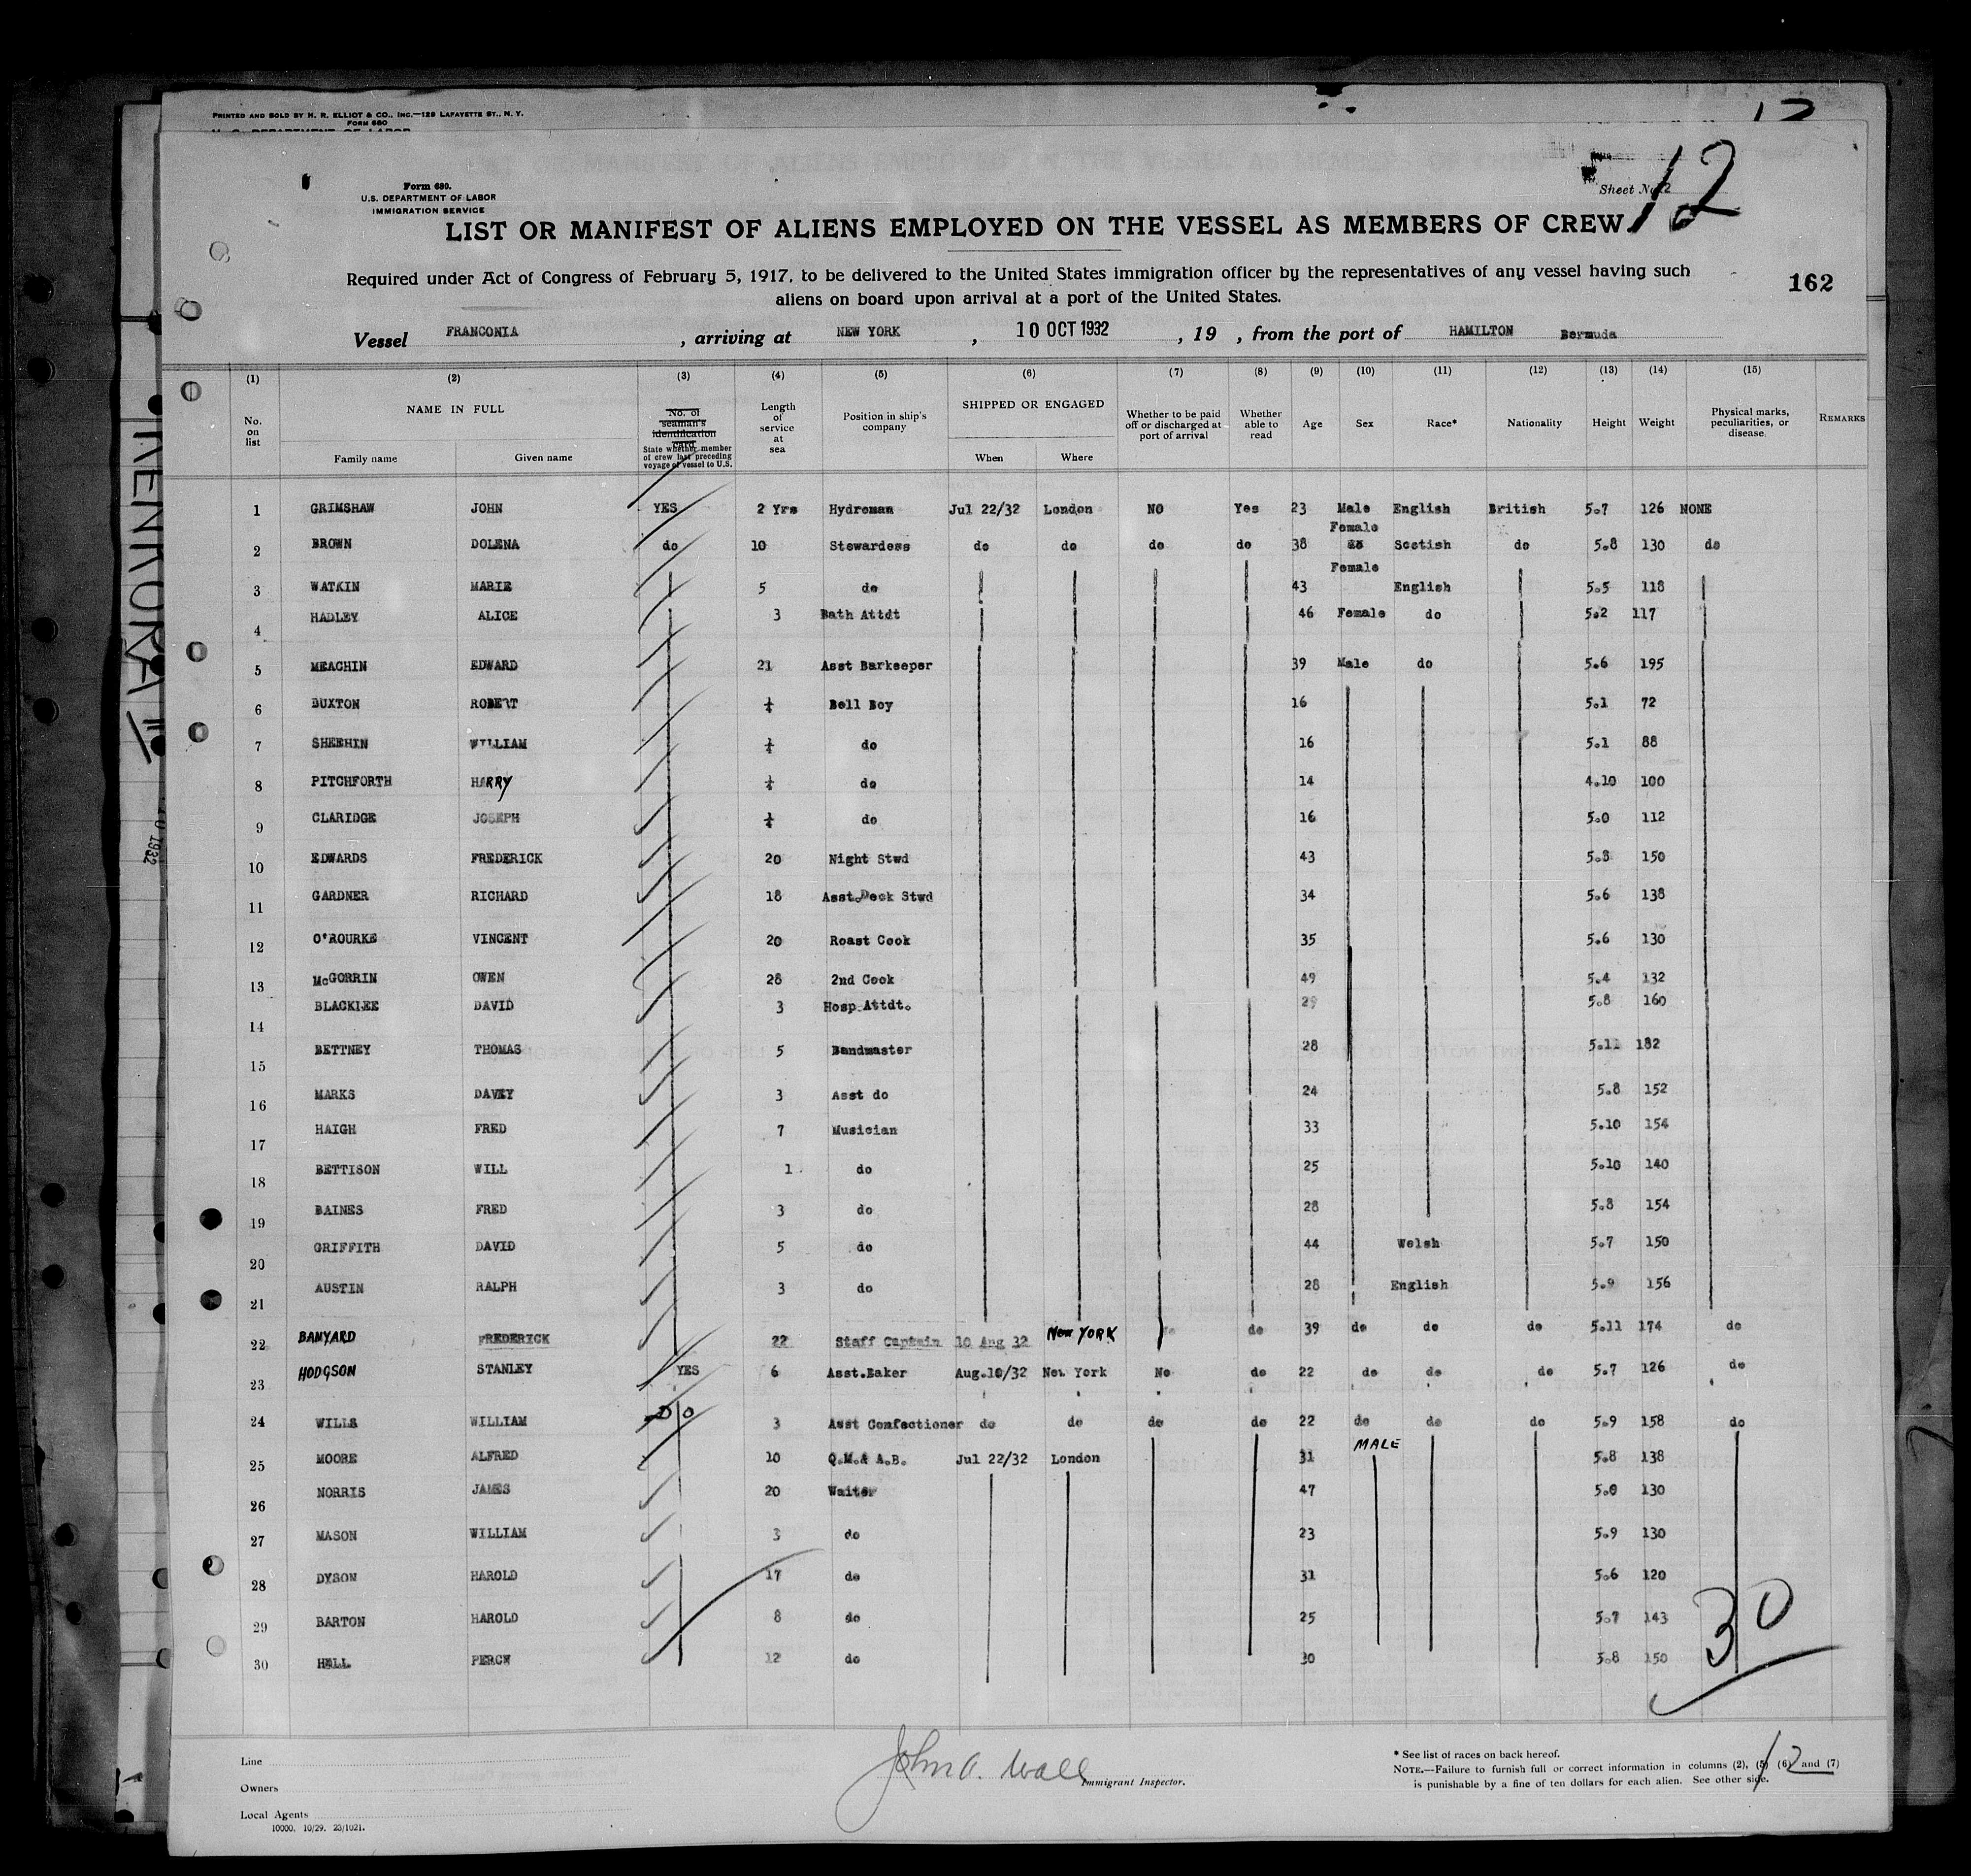 PRINTED AND SOLD BY H. R. ELLIOT & CO., INC.—129 LAFAYETTE ST., N. Y.
FORM 680
U. S. DEPARTMENT OF LABOR
12
Form 680.
U.S. DEPARTMENT OF LABOR
IMMIGRATION SERVICE
Sheet No. 12
LIST OR MANIFEST OF ALIENS EMPLOYED ON THE VESSEL AS MEMBERS OF CREW
Required under Act of Congress of February 5, 1917, to be delivered to the United States immigration officer by the representatives of any vessel having such
aliens on board upon arrival at a port of the United States.
162
Vessel FRANCONIA , arriving at NEW YORK , 10 OCT 1932 , 19 , from the port of HAMILTON Bermuda
(1) (2) (3) (4) (5) (6) (7) (8) (9) (10) (11) (12) (13) (14) (15)
No. on list NAME IN FULL Family name Given name No. of seaman's identification card State whether member of crew last preceding voyage of vessel to U.S. Length of service at sea Position in ship's company SHIPPED OR ENGAGED When Where Whether to be paid off or discharged at port of arrival Whether able to read Age Sex Race* Nationality Height Weight Physical marks, peculiarities, or disease REMARKS
1 GRIMSHAW JOHN YES 2 Yrs Hydroman Jul 22/32 London NO Yes 23 Male English British 5.7 126 NONE
2 BROWN DOLENA do 10 Stewardess do do do do 38 Female Scotish do 5.8 130 do
3 WATKIN MARIE 5 do 43 Female English 5.5 118
4 HADLEY ALICE 3 Bath Attdt 46 Female do 5.2 117
5 MEACHIN EDWARD 21 Asst Barkeeper 39 Male do 5.6 195
6 BUXTON ROBERT ¼ Bell Boy 16 5.1 72
7 SHEEHIN WILLIAM ¼ do 16 5.1 88
8 PITCHFORTH HARRY ¼ do 14 4.10 100
9 CLARIDGE JOSEPH ¼ do 16 5.0 112
10 EDWARDS FREDERICK 20 Night Stwd 43 5.8 150
11 GARDNER RICHARD 18 Asst.Deck Stwd 34 5.6 138
12 O'ROURKE VINCENT 20 Roast Cook 35 5.6 130
13 McGORRIN OWEN 28 2nd Cook 49 5.4 132
14 BLACKLEE DAVID 3 Hosp.Attdt. 29 5.8 160
15 BETTNEY THOMAS 5 Bandmaster 28 5.11 182
16 MARKS DAVEY 3 Asst do 24 5.8 152
17 HAIGH FRED 7 Musician 33 5.10 154
18 BETTISON WILL 1 do 25 5.10 140
19 BAINES FRED 3 do 28 5.8 154
20 GRIFFITH DAVID 5 do 44 Welsh 5.7 150
21 AUSTIN RALPH 3 do 28 English 5.9 156
22 BANYARD FREDERICK 22 Staff Captain 10 Aug 32 New YORK do 39 do do do 5.11 174 do
23 HODGSON STANLEY YES 6 Asst.Baker Aug.10/32 New York No do 22 do do do 5.7 126 do
24 WILLS WILLIAM DO 3 Asst Confectioner do do do do 22 do do do 5.9 158 do
25 MOORE ALFRED 10 Q.M.& A.B. Jul 22/32 London 31 MALE 5.8 138
26 NORRIS JAMES 20 Waiter 47 5.0 130
27 MASON WILLIAM 3 do 23 5.9 130
28 DYSON HAROLD 17 do 31 5.6 120
29 BARTON HAROLD 8 do 25 5.7 143
30 HALL PERCY 12 do 30 5.8 150
30
Line
Owners
Local Agents
10000. 10/29. 23/1021.
John A. Wall
Immigrant Inspector.
* See list of races on back hereof.
NOTE.—Failure to furnish full or correct information in columns (2), (5) (6) and (7)
is punishable by a fine of ten dollars for each alien. See other side.
12